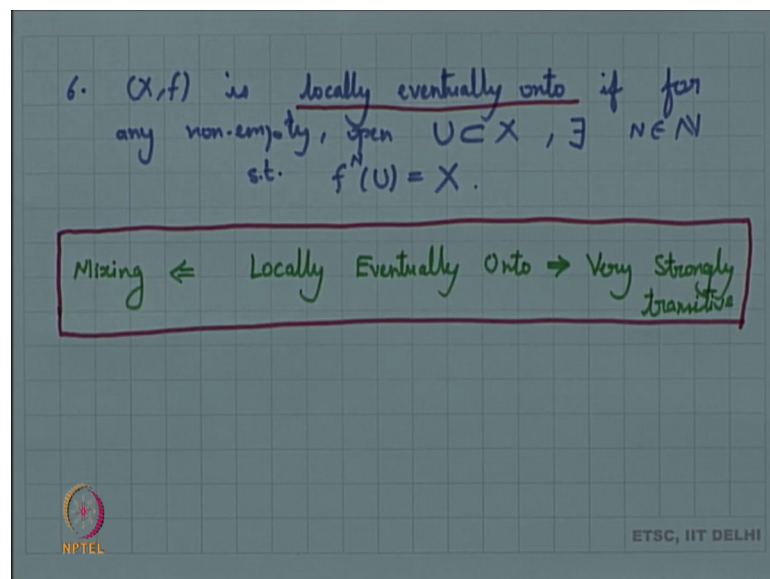 6. (X,f) is locally eventually onto if for
any non-empty, open U⊂X, ∃ N∈ℕ
s.t. f^N(U) = X.
Mixing ⇐ Locally Eventually Onto ⇒ Very Strongly
transitive
NPTEL
ETSC, IIT DELHI